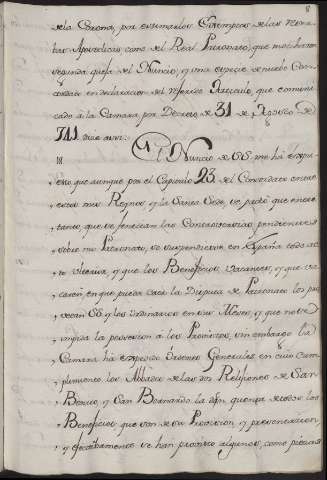 8
de la Corona, por estimarlos Exemptos de las Reser-
bas Apostolicas como del Real Patronato, que motibaron
segunda quexa del Nuncio, y una especie de nuebo Con-
cordato en declaracion del referido Articulo, que comuni-
cado à la Camara por Decreto de 31 de Agosto de
741 dice assi:
El Nuncio de S.S. me ha expu-
esto que aunque por el Capitulo 23 del Concordato entre
estos mis Reynos y la Santa Sede, se pactò que entre
tanto, que se fenecian las Controversias pendientes
sobre mi Patronato, se suspendiesse en España todo ac-
to
y que los Beneficios vacantes, y que va-
caren, en que pueda caer la Disputa de Patronato los pro-
vean S.S. y los Ordinarios en sus Meses, y que no se
impida la possesion à los Provistos, sin embargo la
Camara ha expedido Ordenes Generales en cuio cum-
plimiento los Abbades de las dos Religiones de San
Benito, y San Bernardo la dan quenta de todos los
Beneficios que son de su Provision, y presentacion
y efectibamente se han provisto algunos, como